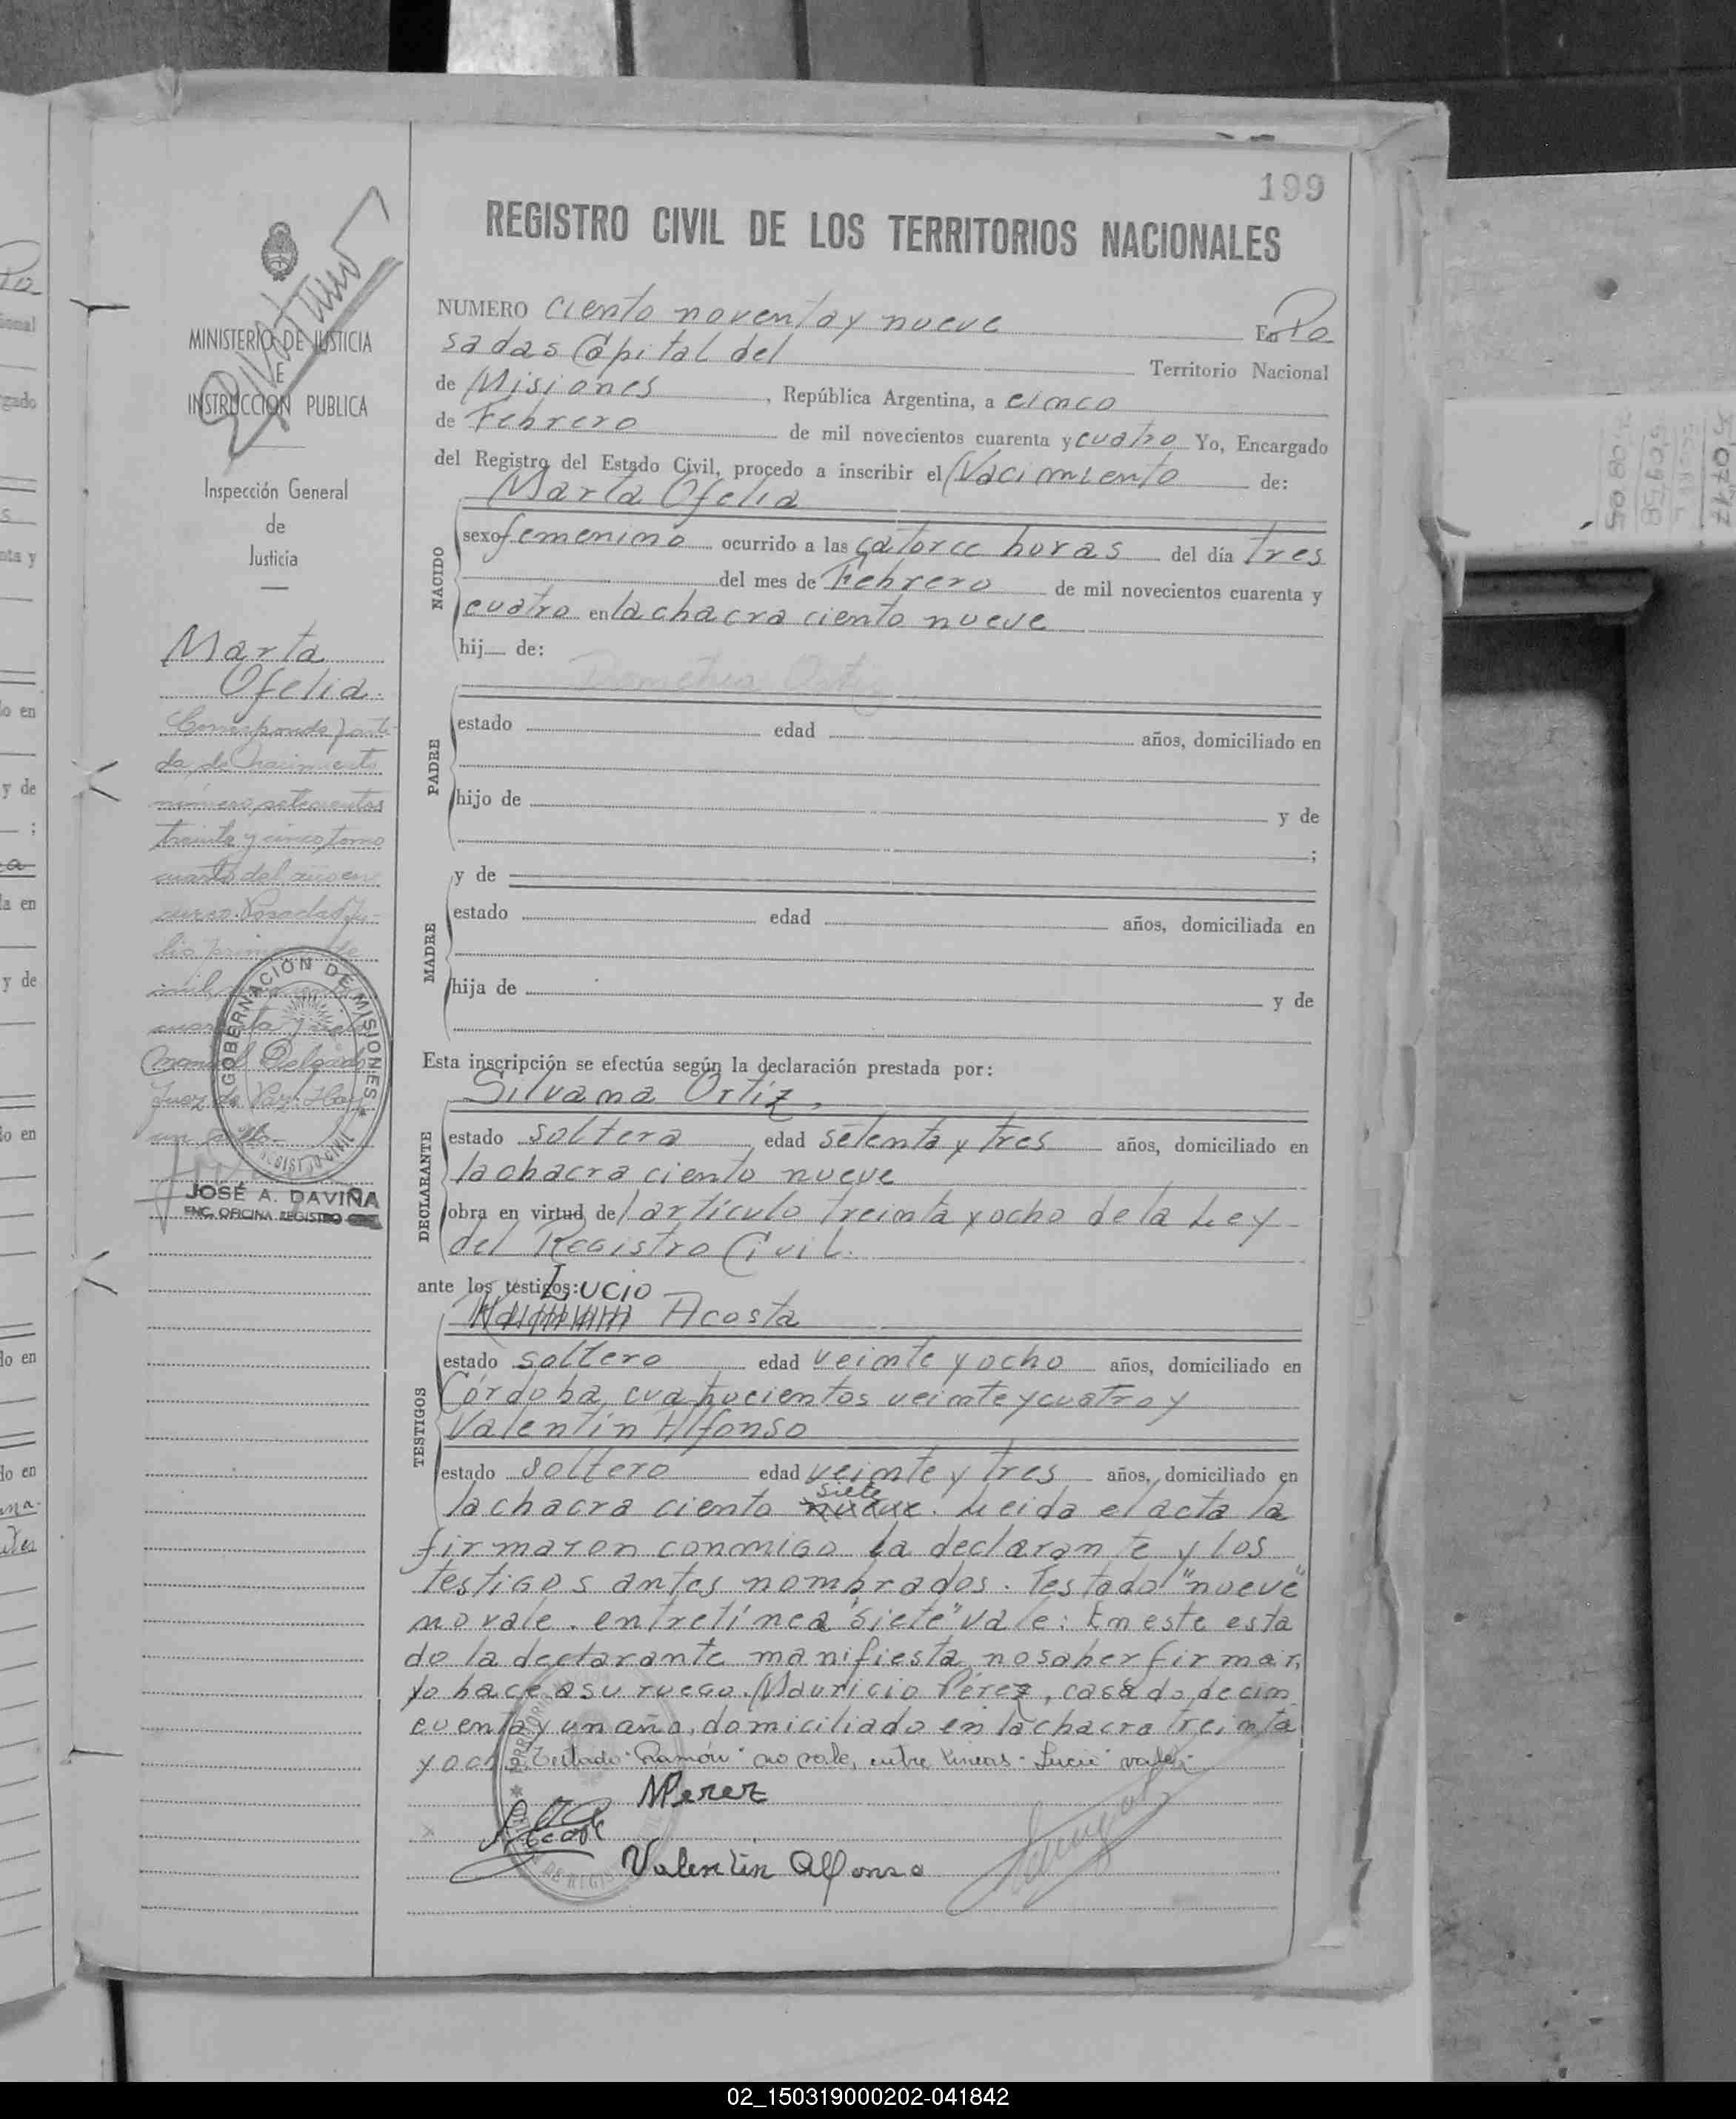 199
REGISTRO CIVIL DE LOS TERRITORIOS NACIONALES
MINISTERIO DE JUSTICIA
E
INSTRUCCION PUBLICA
Inspección General
de
Justicia
Marta
Ofelia
Corresponde parti-
da de Nacimiento
número setecientos
treinta y cinco, tomo
cuarto del año en
curso. Posadas Ju-
lio primero de
mil
cuarenta y
Manuel Delgado
Juez de Paz. Hay
un sello
GOBERNACIÓN DE MISIONES
REGISTRO CIVIL
JOSÉ A. DAVIÑA
ENC. OFICINA REGISTRO CIVIL
NUMERO ciento noventa y nueve En Po
sadas Capital del Territorio Nacional
de Misiones, República Argentina, a cinco
de Febrero de mil novecientos cuarenta y cuatro Yo, Encargado
del Registro del Estado Civil, procedo a inscribir el Nacimiento de:
Marta Ofelia
NACIDO
sexo femenino ocurrido a las catorce horas del día tres
del mes de Febrero de mil novecientos cuarenta y
cuatro en la chacra ciento nueve
hij de:
Ortiz
PADRE
estado edad años, domiciliado en
hijo de y de
;
MADRE
y de
estado edad años, domiciliada en
hija de y de
Esta inscripción se efectúa según la declaración prestada por:
Silvana Ortiz,
DECLARANTE
estado soltera edad setenta y tres años, domiciliado en
la chacra ciento nueve
obra en virtud del artículo treinta y ocho de la Ley
del Registro Civil.
ante los testigos: Lucio
Acosta
TESTIGOS
estado soltero edad veinte y ocho años, domiciliado en
Córdoba cuatrocientos veinte y cuatro y
Valentín Alfonso
estado soltero edad veinte y tres años, domiciliado en
siete
la chacra ciento nueve. Leida el acta la
firmaron conmigo la declarante y los
testigos antes nombrados. Testado "nueve"
no vale. entrelínea "siete" vale: En este esta
do la declarante manifiesta no saber firmar,
lo hace a su ruego. Mauricio Pérez, casado de cin
cuenta y un año, domiciliado en la chacra treinta
y ocho Testado "Ramón" no vale, entre lineas "Lucio" vale.
MPerez
Valentin Alfonso
02_150319000202-041842